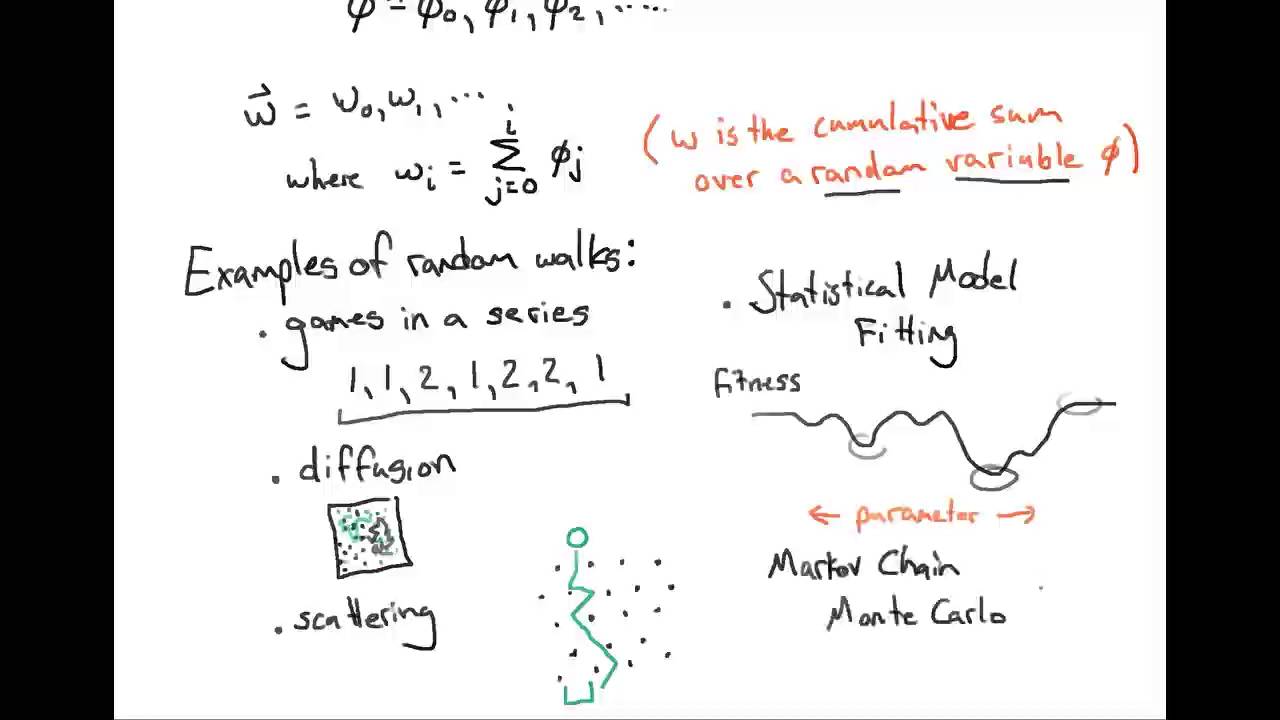 φ = φ₀, φ₁, φ₂, .....
w⃗ = w₀, w₁, ...
where wᵢ = ∑ᵢⱼ₌₀ φⱼ
(w is the cumulative sum
over a random variable φ)
Examples of random walks:
. games in a series
1, 1, 2, 1, 2, 2, 1
. diffusion
. scattering
. Statistical Model
Fitting
fitness
← parameter →
Markov Chain
Monte Carlo